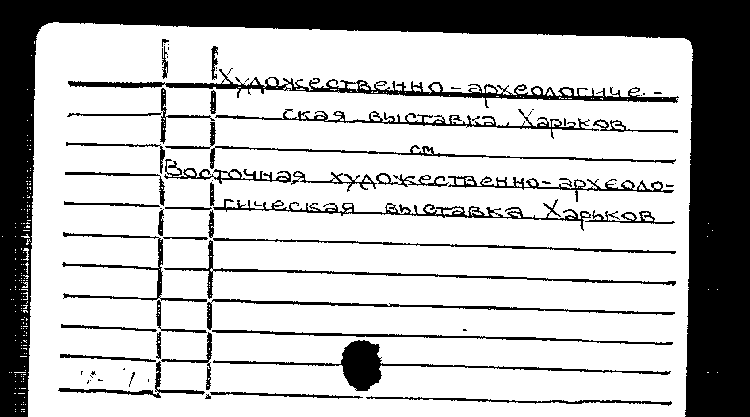 Художественно-археологиче-
ская выставка, Харьков
см.
Восточная художественно-археоло-
гическая выставка, Харьков